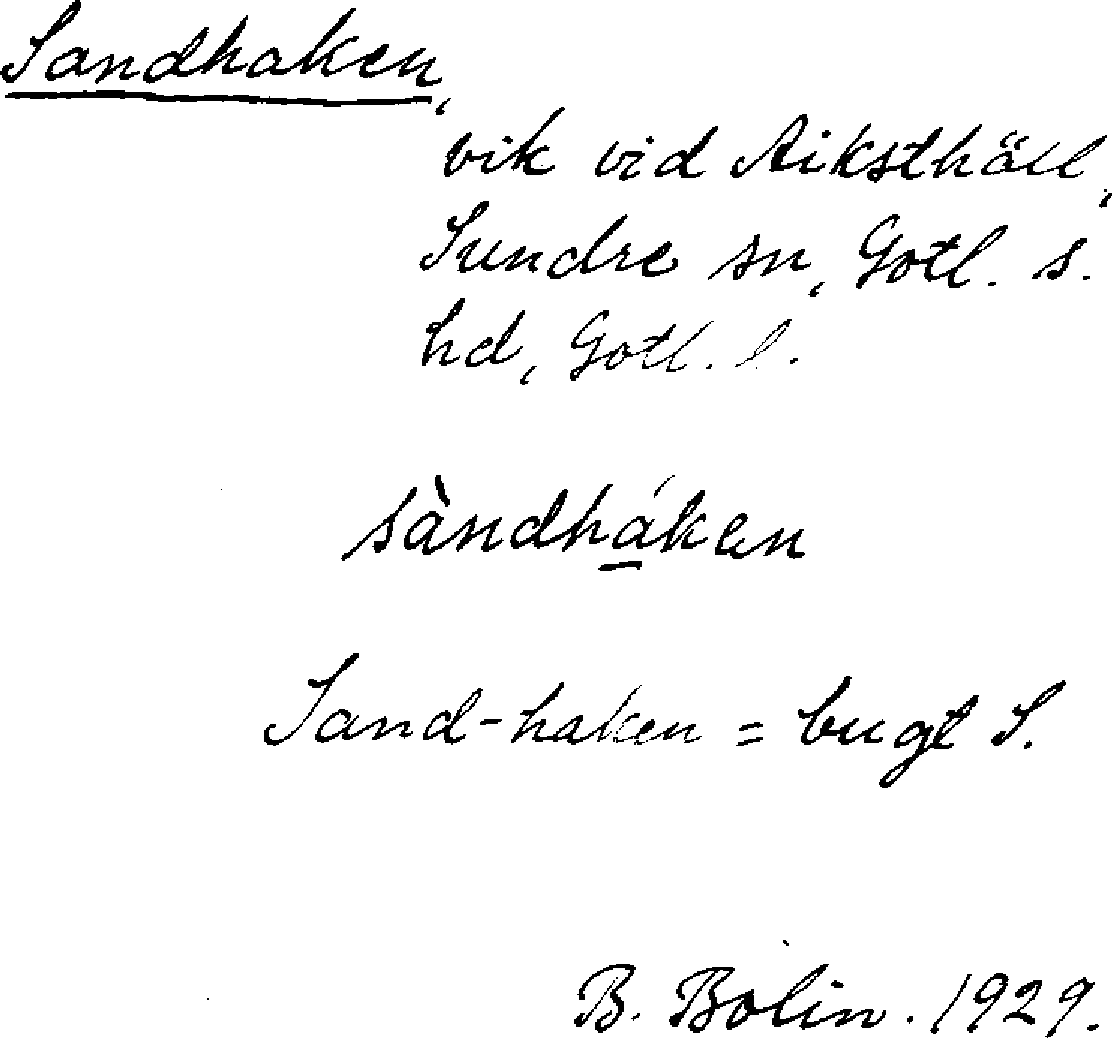 Sandhaken,
vik vid Aiksthäll,
Sundre sn, Gotl. s.
hd, Gotl. l.
sàndhá̱ken
Sand-haken = bugt S.
B. Bolin. 1929.